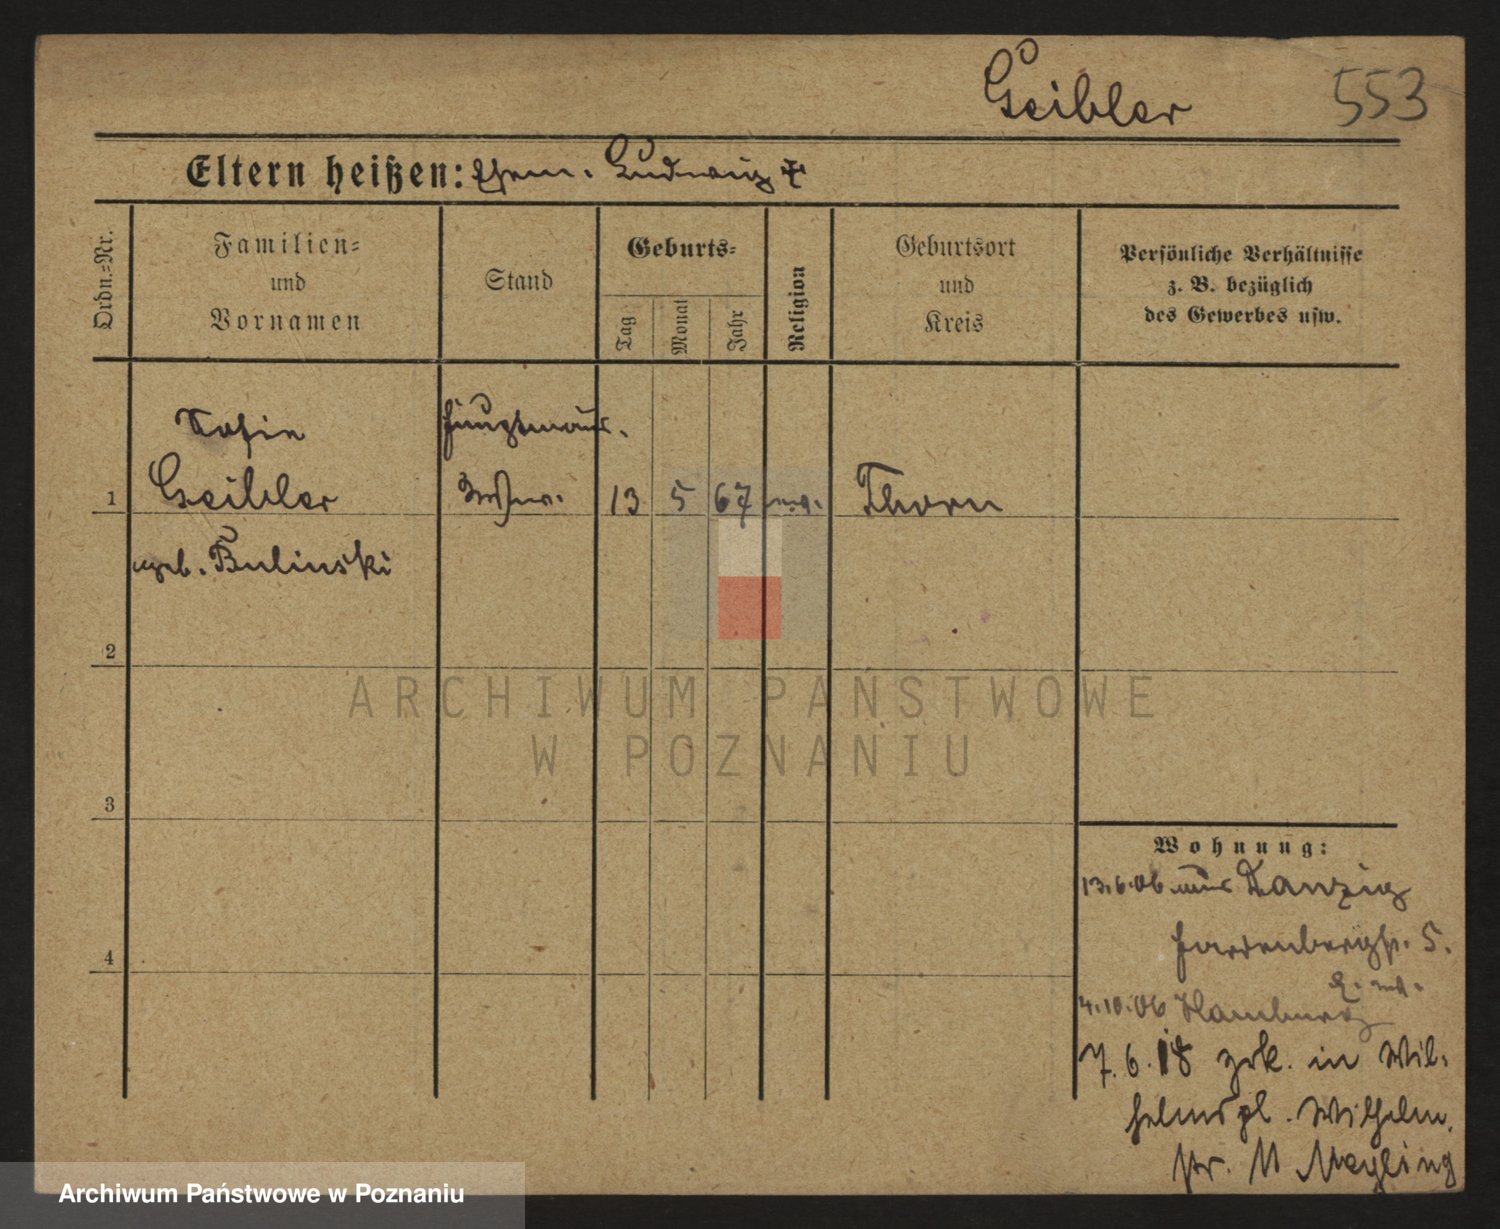 Geibler 553
Eltern heißen: Ehem. Ludwig †
Ordn.=Nr.
Familien=
und
Vornamen
Stand
Geburts=
Tag
Monat
Jahr
Religion
Geburtsort
und
Kreis
Persönliche Verhältnisse
z. B. bezüglich
des Gewerbes usw.
Sofie Hauptmans.
1 Geibler Wtw. 13 5 67 Thorn
geb. Bulinski
2
3
4
Wohnung:
13.6.06 aus Danzig
Hardenbergstr. 5.
4.10.06 Hamburg
7.6.18 zrk. in Wil-
helmspl. Wilhelm.
str. 11 Meyling
ARCHIWUM PAŃSTWOWE
W POZNANIU
Archiwum Państwowe w Poznaniu